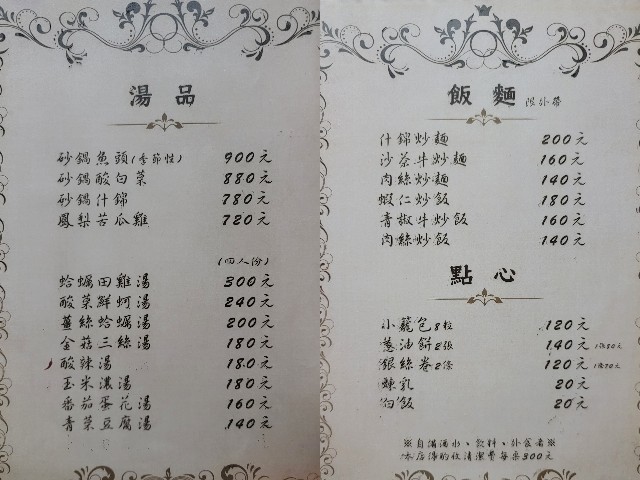 湯品
砂鍋魚頭(季節性) 900元
砂鍋酸白菜 880元
砂鍋什錦 780元
鳳梨苦瓜雞 720元
(四人份)
蛤蠣田雞湯 300元
酸菜鮮蚵湯 240元
薑絲蛤蠣湯 200元
金菇三絲湯 180元
酸辣湯 180元
玉米濃湯 180元
番茄蛋花湯 160元
青菜豆腐湯 140元
飯麵 限外帶
什錦炒麵 200元
沙茶牛炒麵 160元
肉絲炒麵 140元
蝦仁炒飯 180元
青椒牛炒飯 160元
肉絲炒飯 140元
點心
小籠包8粒 120元
蔥油餅2張 140元 1張80元
銀絲卷2條 120元 1條70元
煉乳 20元
白飯 20元
※自備酒水、飲料、外食者※
本店將酌收清潔費每桌300元